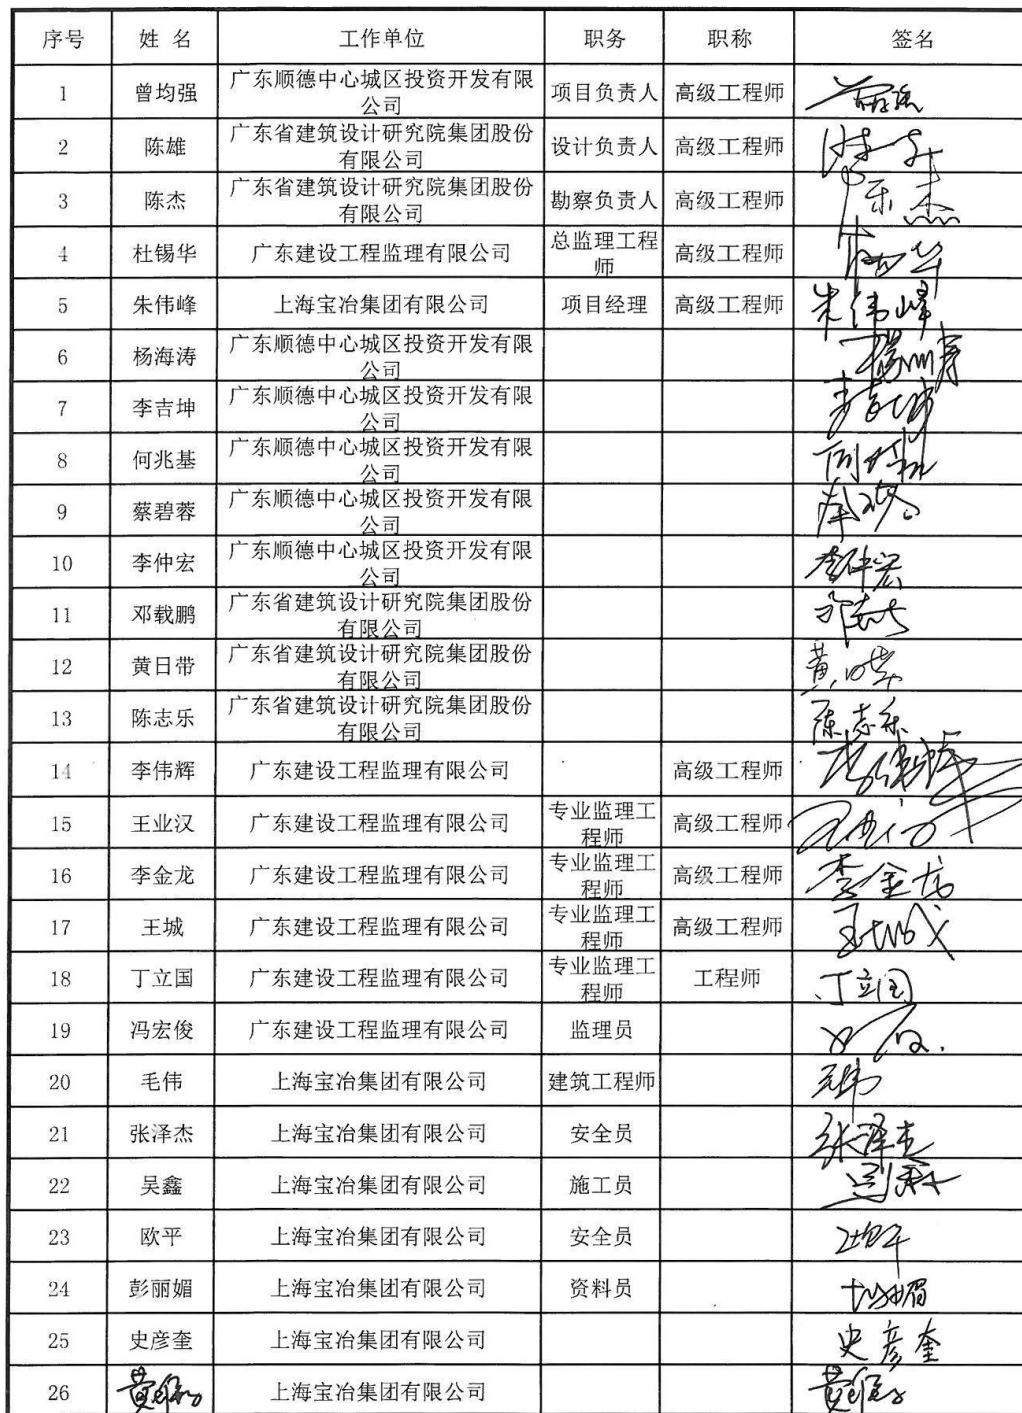 序号 姓 名 工作单位 职务 职称 签名
1 曾均强 广东顺德中心城区投资开发有限
公司 项目负责人 高级工程师
2 陈雄 广东省建筑设计研究院集团股份
有限公司 设计负责人 高级工程师
3 陈杰 广东省建筑设计研究院集团股份
有限公司 勘察负责人 高级工程师 陈杰
4 杜锡华 广东建设工程监理有限公司 总监理工程
师 高级工程师
5 朱伟峰 上海宝冶集团有限公司 项目经理 高级工程师 朱伟峰
6 杨海涛 广东顺德中心城区投资开发有限
公司
7 李吉坤 广东顺德中心城区投资开发有限
公司
8 何兆基 广东顺德中心城区投资开发有限
公司
9 蔡碧蓉 广东顺德中心城区投资开发有限
公司
10 李仲宏 广东顺德中心城区投资开发有限
公司 李仲宏
11 邓载鹏 广东省建筑设计研究院集团股份
有限公司
12 黄日带 广东省建筑设计研究院集团股份
有限公司 黄日带
13 陈志乐 广东省建筑设计研究院集团股份
有限公司 陈志乐
14 李伟辉 广东建设工程监理有限公司 高级工程师
15 王业汉 广东建设工程监理有限公司 专业监理工
程师 高级工程师
16 李金龙 广东建设工程监理有限公司 专业监理工
程师 高级工程师 李金龙
17 王城 广东建设工程监理有限公司 专业监理工
程师 高级工程师 王城
18 丁立国 广东建设工程监理有限公司 专业监理工
程师 工程师 丁立国
19 冯宏俊 广东建设工程监理有限公司 监理员
20 毛伟 上海宝冶集团有限公司 建筑工程师 毛伟
21 张泽杰 上海宝冶集团有限公司 安全员 张泽杰
22 吴鑫 上海宝冶集团有限公司 施工员
23 欧平 上海宝冶集团有限公司 安全员
24 彭丽媚 上海宝冶集团有限公司 资料员
25 史彦奎 上海宝冶集团有限公司 史彦奎
26 上海宝冶集团有限公司